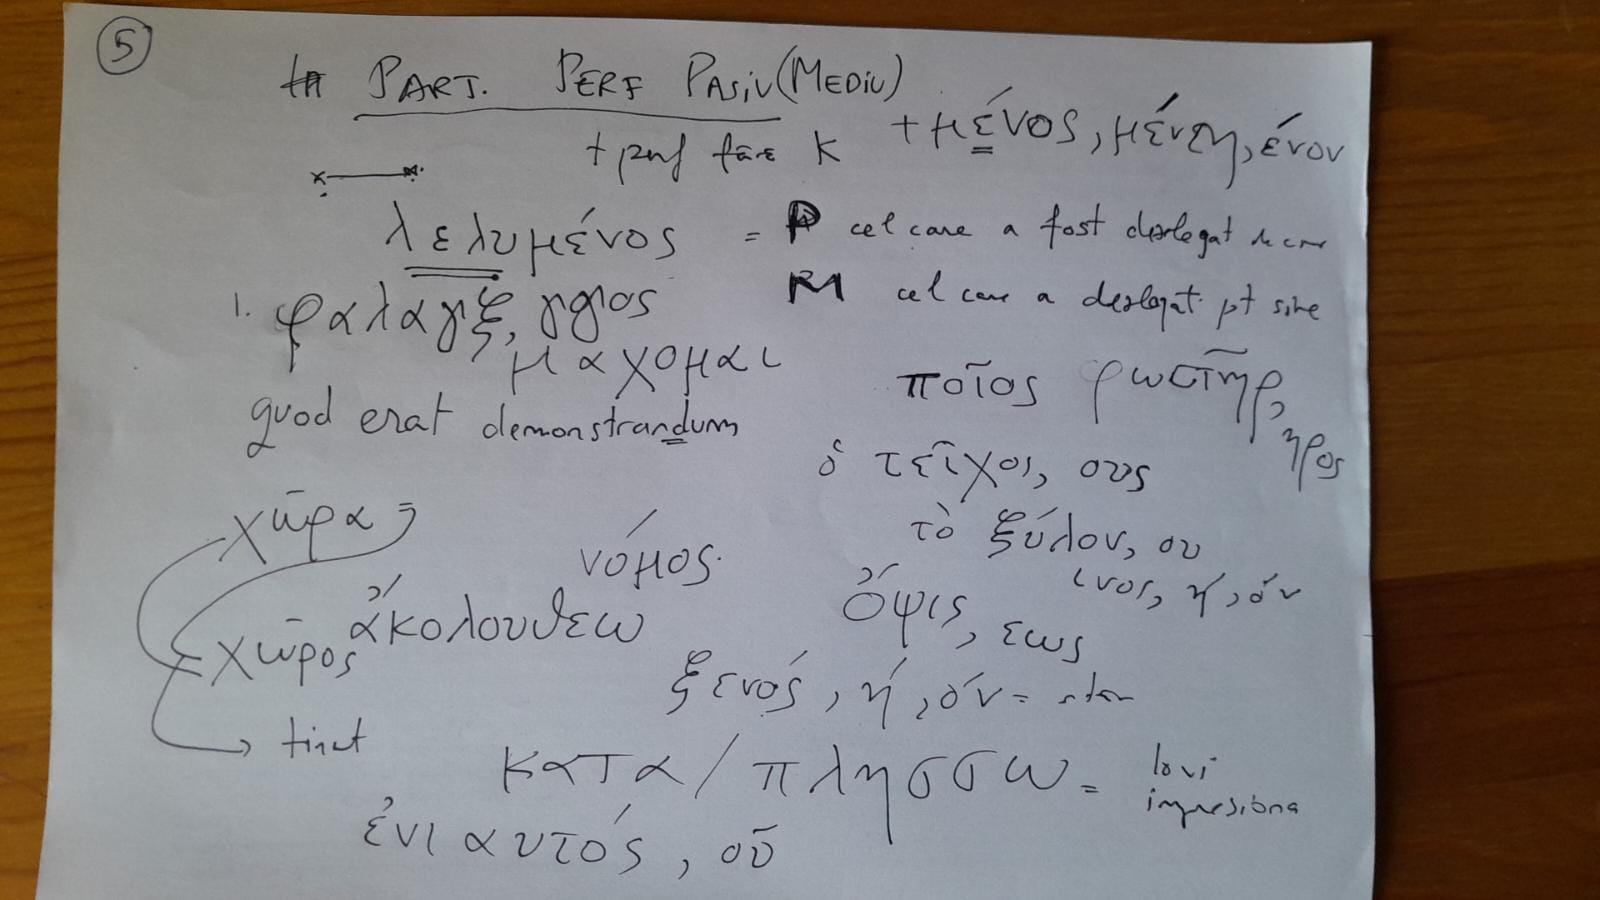 5
PART. PERF PASIV (MEDIU)
+ perf fără K + μένος, μένη, ένον
λελυμένος = P cel care a fost dezlegat de cine
M cel care a dezlegat pt sine
1. φαλαγγξ, γγιος
μαχομαι
ποῖος ρωστῆρ, ῆρος
quod erat demonstrandum
ὁ τεῖχος, ους
χῶρα
τὸ ξύλον, ου
νόμος
ινος, ή, όν
ἀκολουθεω
ὄψις, εως
χῶρος
ξενός, ή, όν =
ținut
κατα/πλησσω = lovi
impresiona
ἐνιαυτός, οῦ